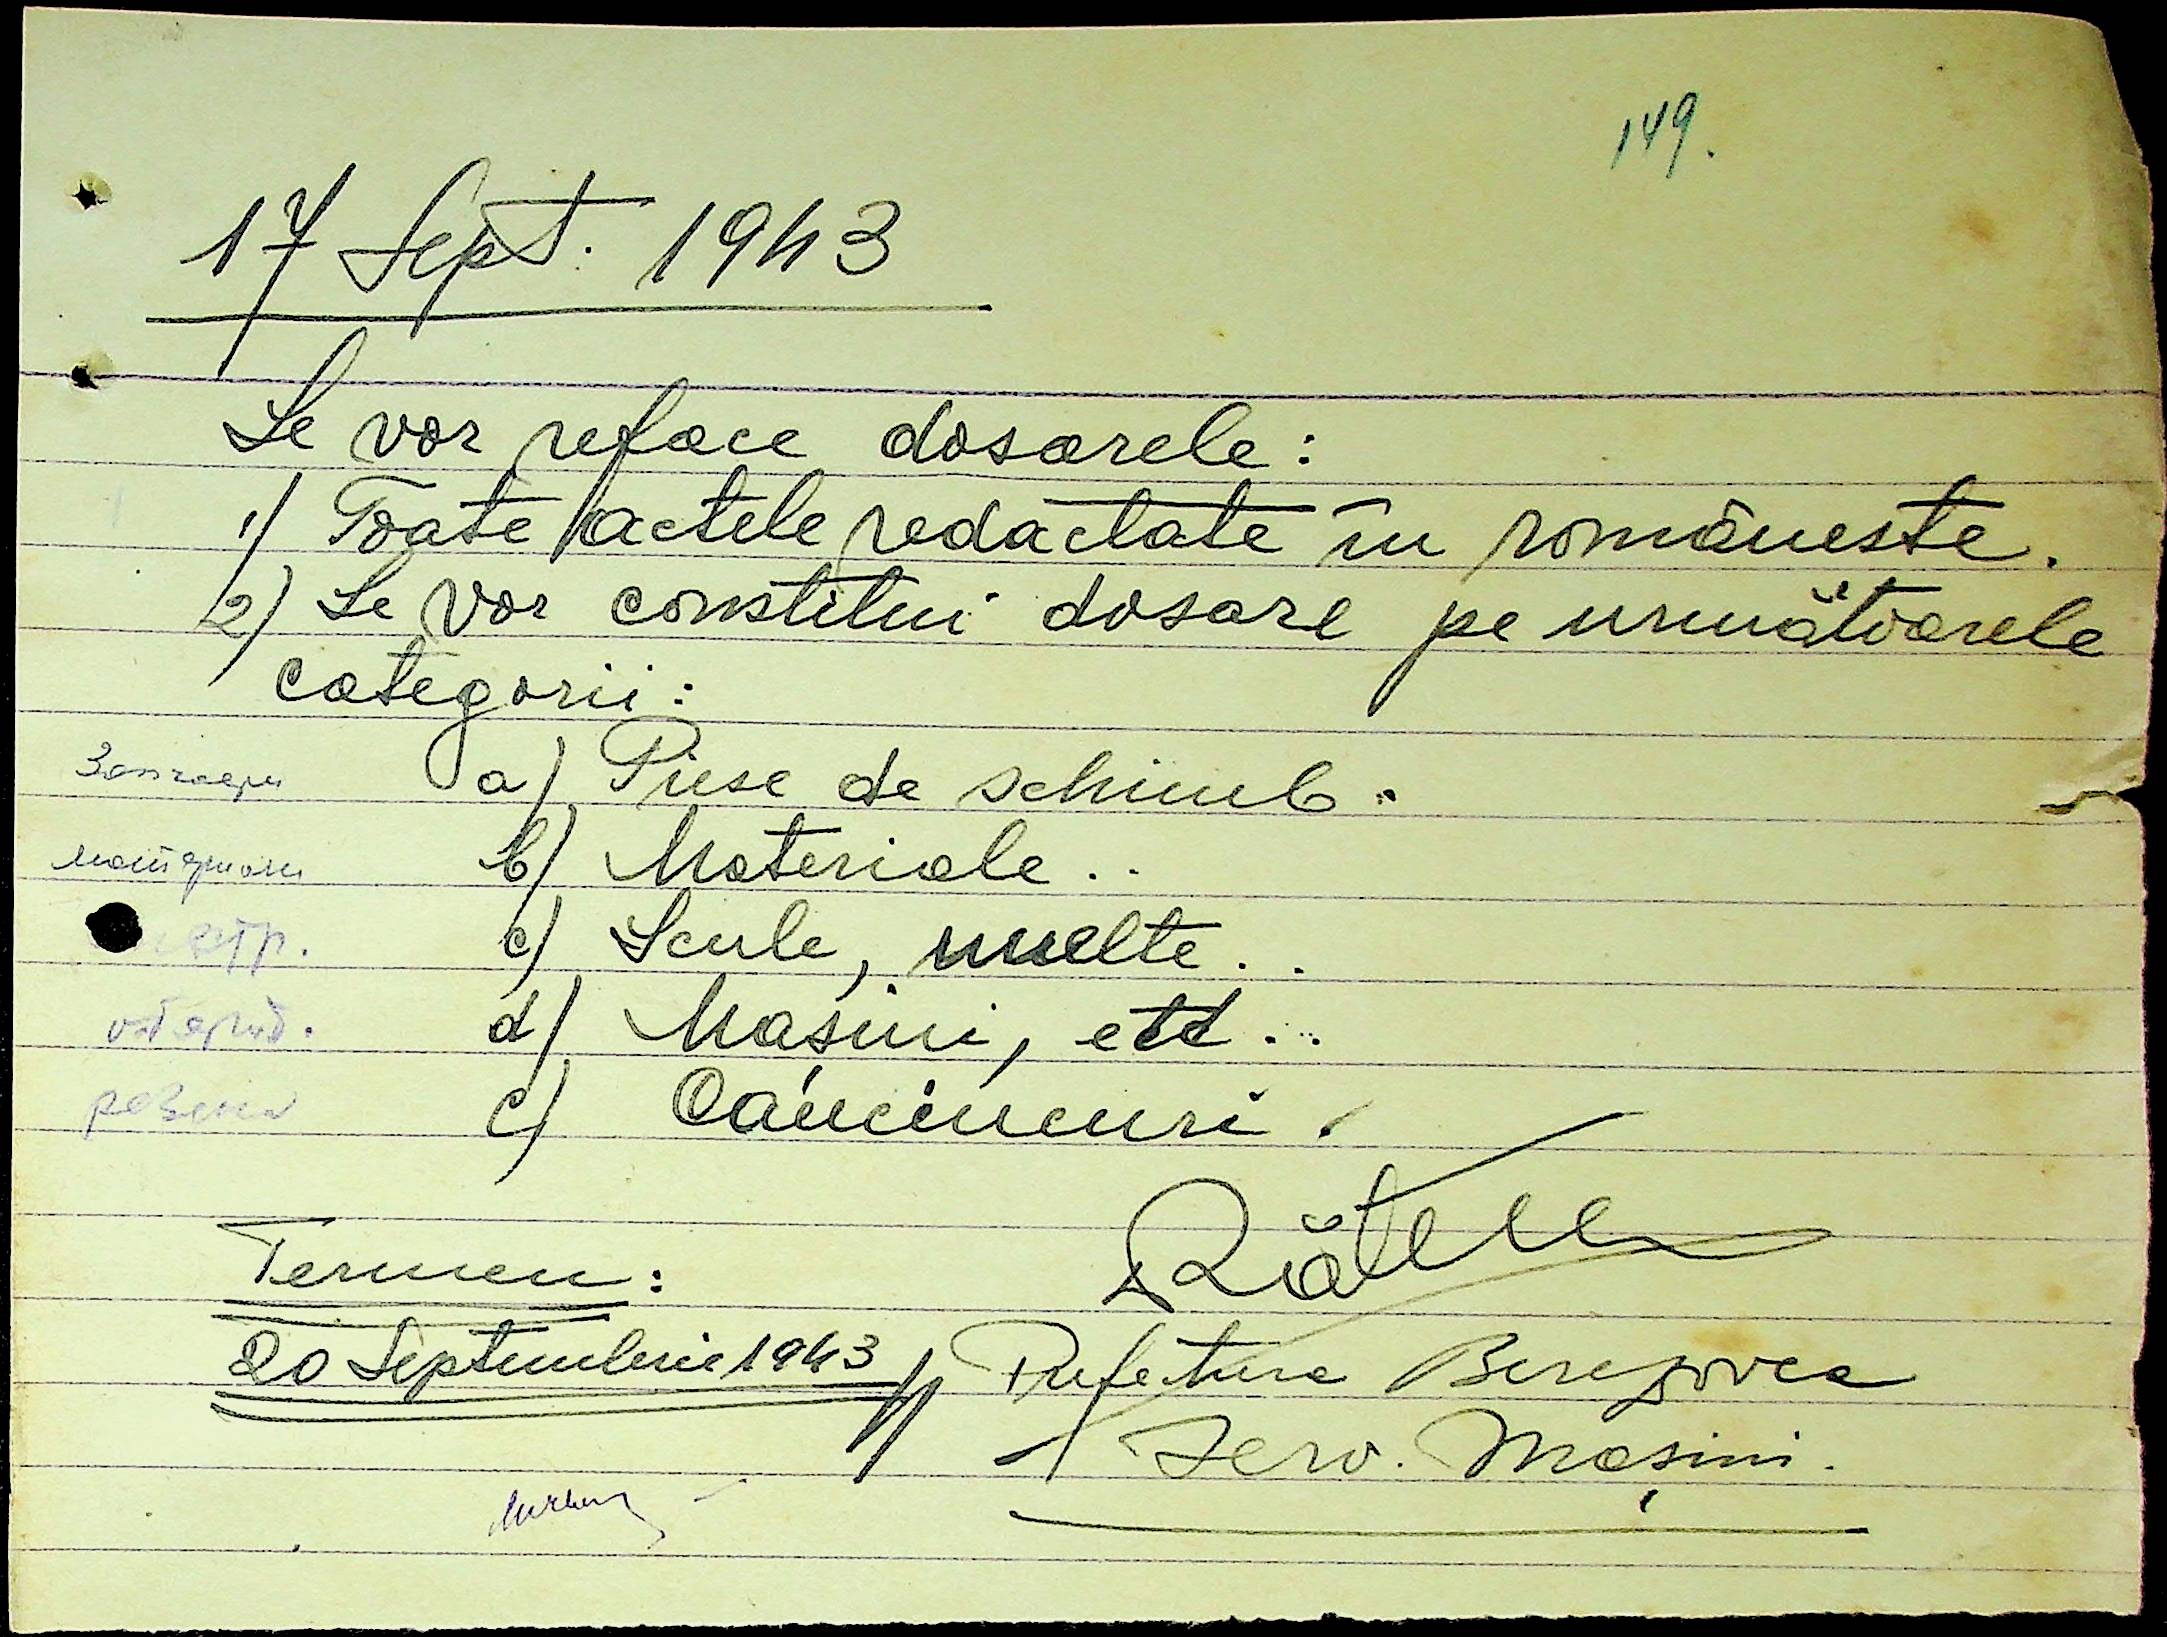 149.
17 Sept. 1943
Se vor reface dosarele:
1) Toate actele redactate în românește.
2) Se vor constitui dosare pe următoarele
categorii:
Запчасти a) Piese de schimb.
материали b) Materiale..
c) Scule, unelte..
d) Masini, etc...
резина e) Cauciucuri.
Termen:
20 Septembrie 1943 Prefectura Berezovca
Serv. Mașini.